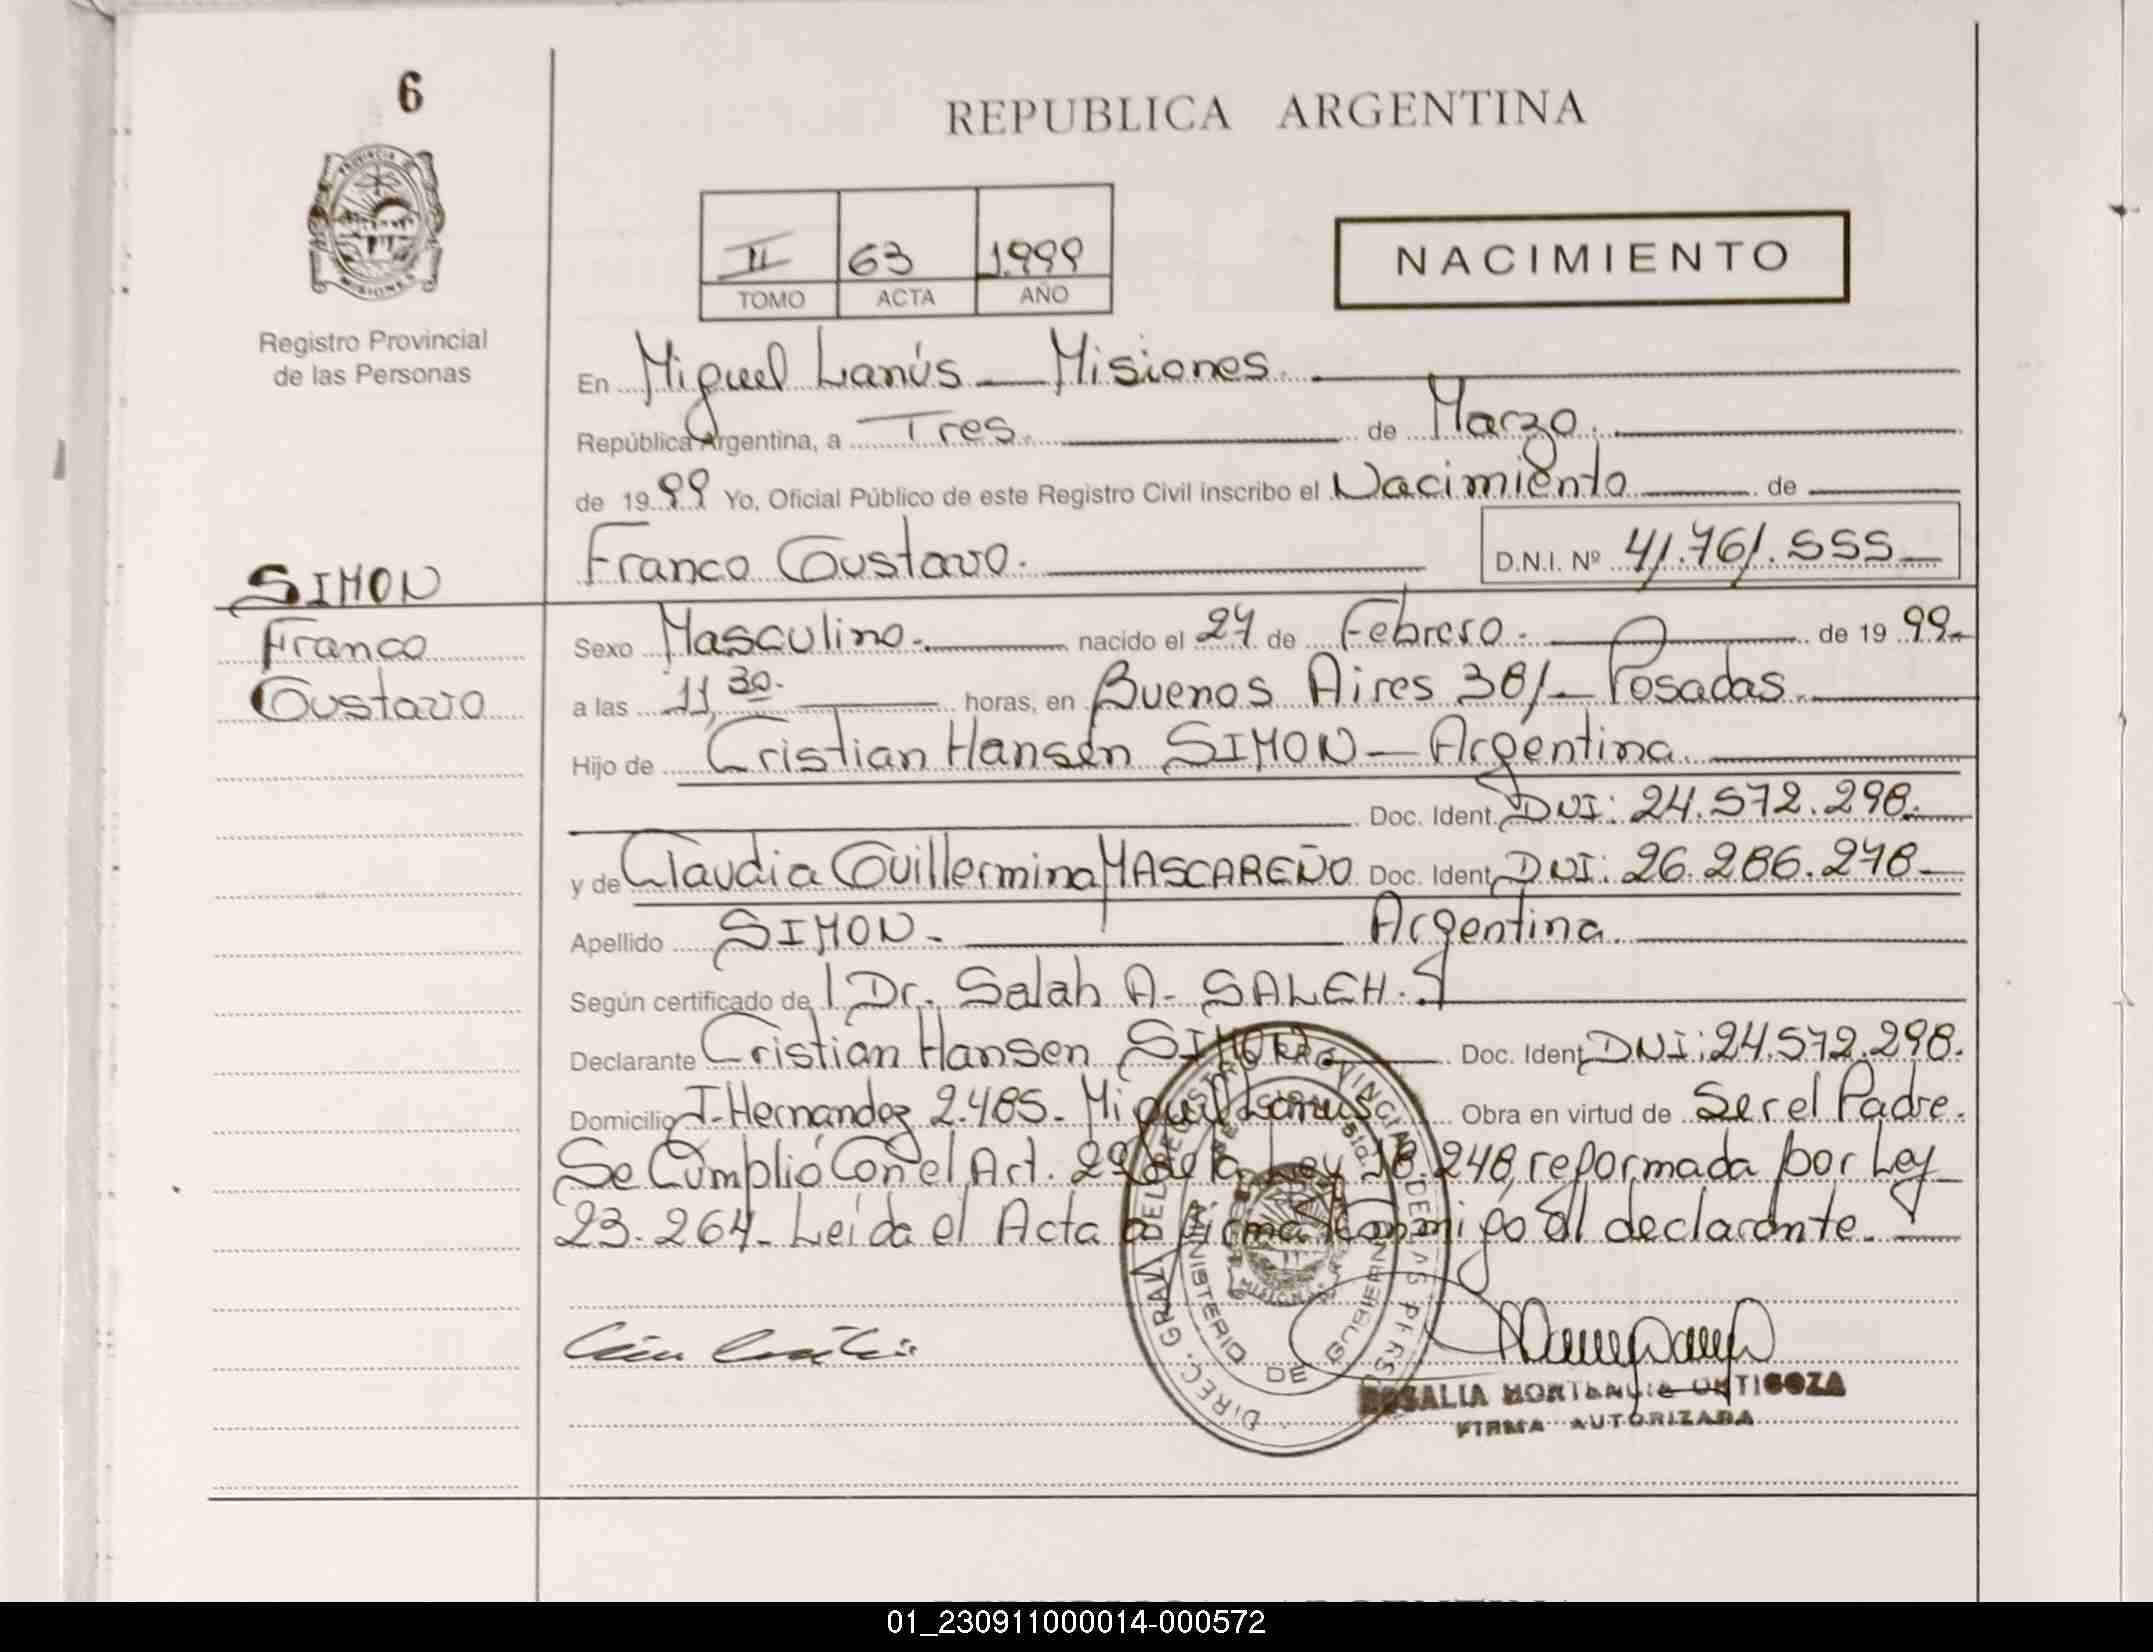 6
REPUBLICA ARGENTINA
II 63 1999
TOMO ACTA AÑO
NACIMIENTO
PROVINCIA DE MISIONES
Registro Provincial
de las Personas
En Miguel Lanús — Misiones.
República Argentina, a Tres. de Marzo.
de 1999 Yo, Oficial Público de este Registro Civil inscribo el Nacimiento de
Franco Gustavo. D.N.I. Nº 41.761.555
SIMON
Franco
Gustavo
Sexo Masculino. nacido el 27 de Febrero. de 1999
a las 11,30. horas, en Buenos Aires 381 — Posadas.
Hijo de Cristian Hansen SIMON — Argentina.
Doc. Ident. DNI: 24.572.298.
y de Claudia Guillermina MASCAREÑO Doc. Ident. DNI: 26.286.278
Apellido SIMON. Argentina.
Según certificado de Dr. Salah A. SALEH.
Declarante Cristian Hansen SIMON. Doc. Ident. DNI: 24.572.298.
Domicilio J. Hernandez 2.485. Miguel Lanus Obra en virtud de Ser el Padre.
Se Cumplió Con el Art. 2º de la Ley 18.248, reformada por Ley
23.264. Leída el Acta la firma Conmigo el declarante.
DIREC. GRAL. DEL REGISTRO PROVINCIAL DE LAS PERSONAS
MINISTERIO DE GOBIERNO
ROSALIA HORTENCIA ORTIGOZA
FIRMA AUTORIZADA
01_230911000014-000572